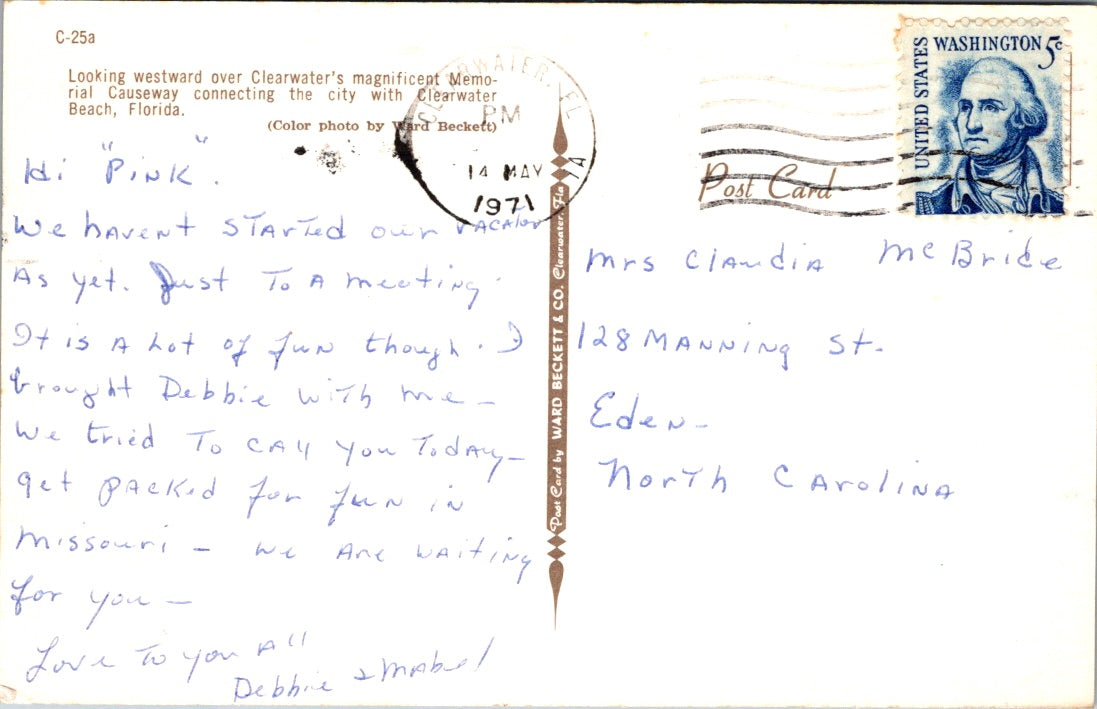 C-25a
Looking westward over Clearwater's magnificent Memo-
rial Causeway connecting the city with Clearwater
Beach, Florida.
(Color photo by Ward Beckett)
CLEARWATER, FL
PM
14 MAY
1971
7A
UNITED STATES
WASHINGTON 5c
Post Card
Hi "Pink".
We havent started our vacation
As yet. Just To A meeting.
It is A Lot of fun though. I
brought Debbie with me –
We tried To CAll you Today –
get PACKed for fun in
Missouri – we Are waiting
for you –
Love To you All
Debbie & Mabel
Post Card by WARD BECKETT & CO. Clearwater, Fla
Mrs Claudia McBride
128 MANNiNg St.
Eden –
North CAroliNA